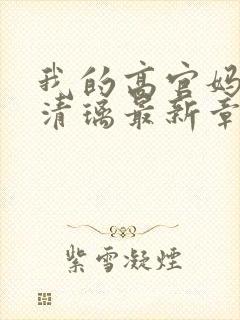 我的高官妈
清璃最新章
紫雪凝烟